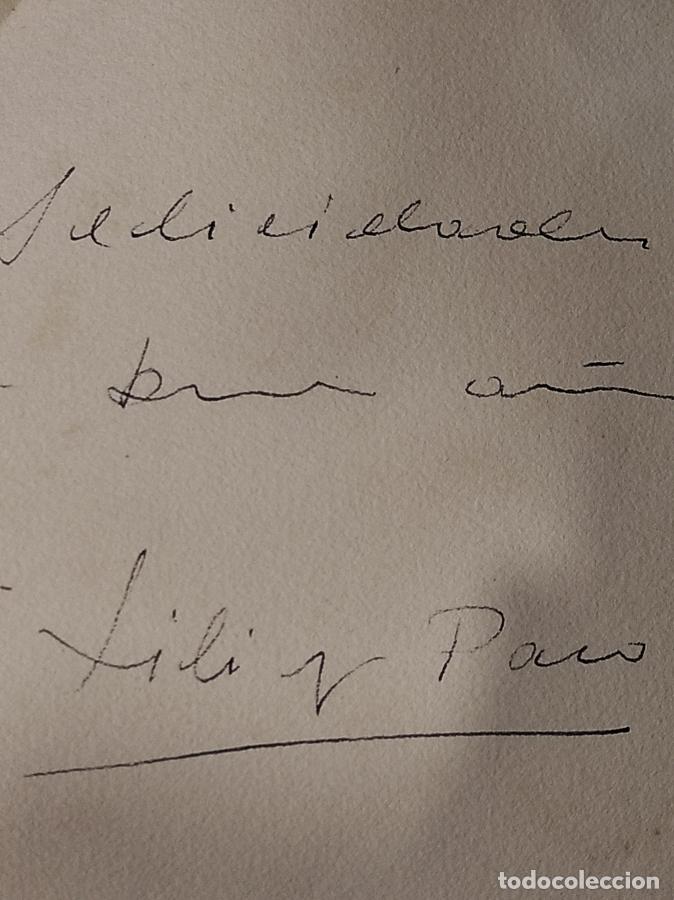 Felicidades
buen año
Lili y Paco
todocoleccion